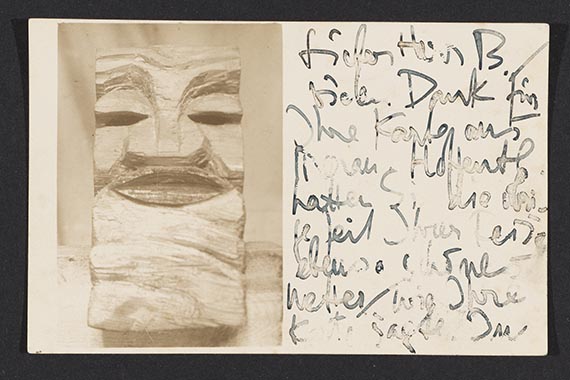 Lieber Herr B.
vielen Dank für
Ihre Karte aus
Meran. Hoffentl.
hatten Sie die
zeit Ihrer
ebenso schöne
wetter, wie Ihre
Karte sagte. In